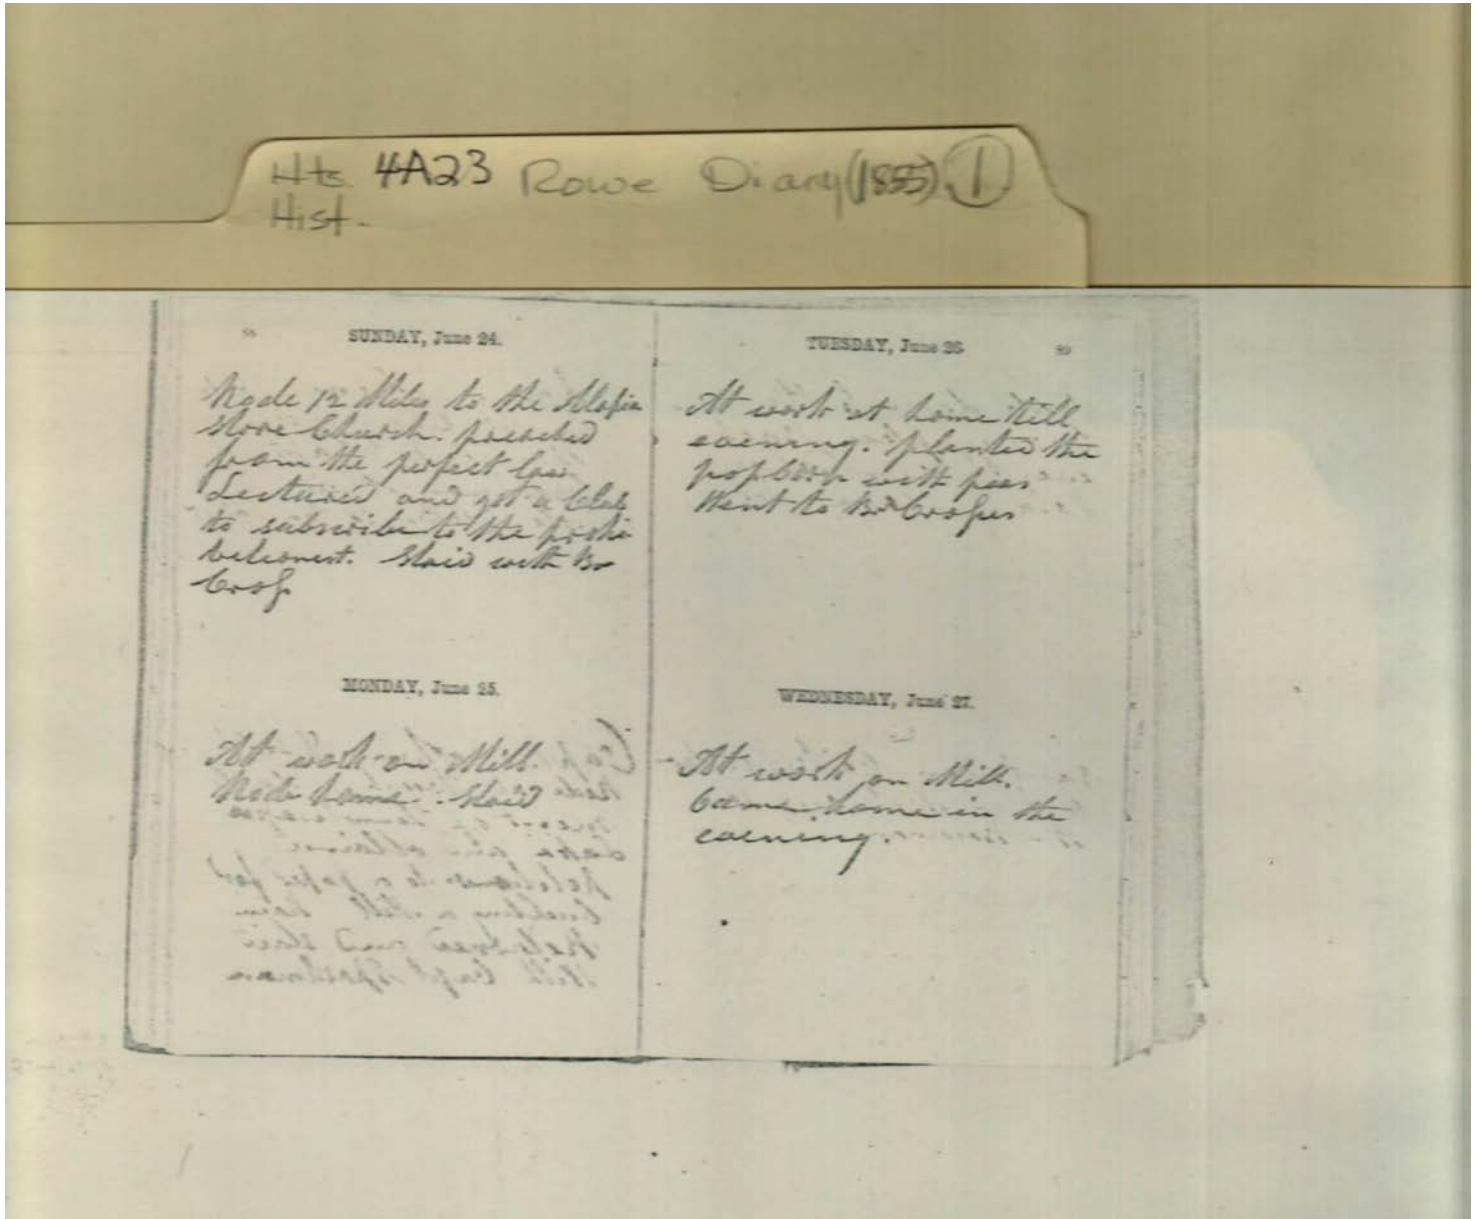 Hts 4A23 Rowe Diary (1855) 1
Hist-
SUNDAY, June 24.
Rode 12 Miles to the
Store Church. preached
from the perfect law
Lectured and got a Club
to subscribe to the prohi-
Staid with Br
MONDAY, June 25.
At work on Mill.
Rode home. Staid
TUESDAY, June 26.
At work at home till
evening. planted the
popcorn with peas
Went to Br
WEDNESDAY, June 27.
At work on Mill.
Came home in the
evening.